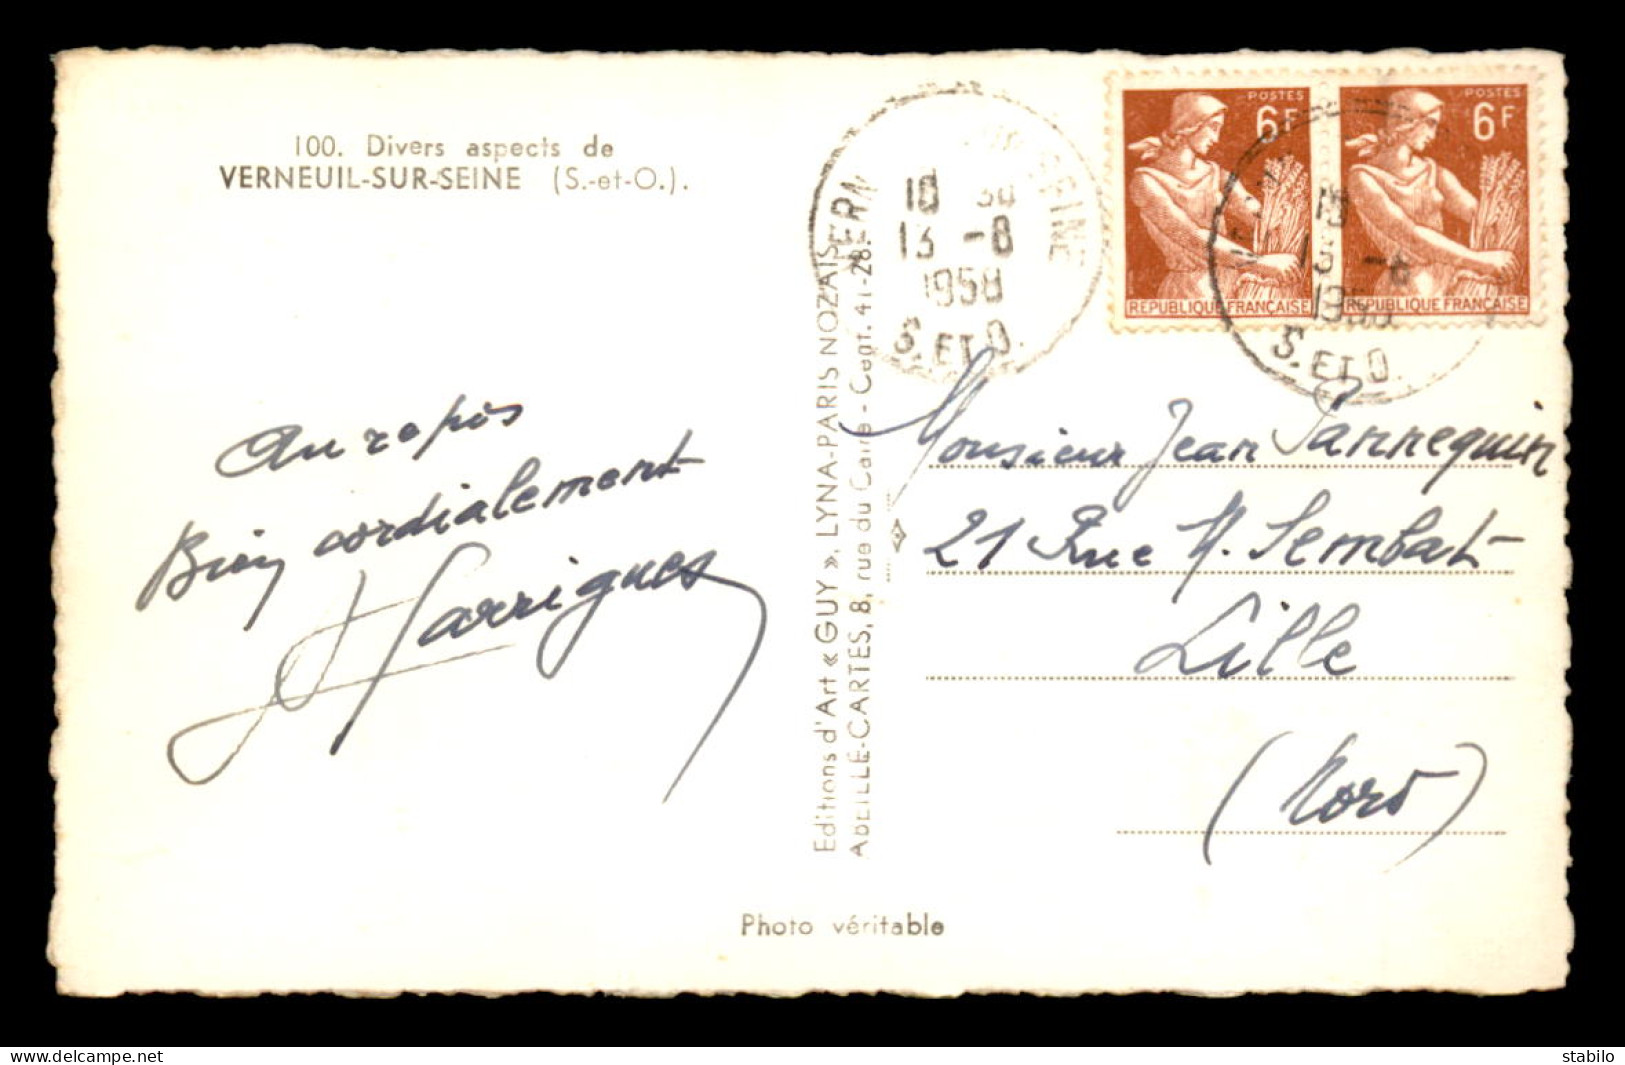 100. Divers aspects de
VERNEUIL-SUR-SEINE (S.-et-O.).
Au repos
Bien cordialement
Garrigues
Editions d'Art « GUY », LYNA-PARIS NOZAIS
ABEILLE-CARTES, 8, rue du Caire - Cent. 41-28.
VERN SEINE
18 30
13 -8
1958
S. ET O.
POSTES
6F
REPUBLIQUE FRANÇAISE
POSTES
6F
REPUBLIQUE FRANÇAISE
18
13 -8
1958
S. ET O.
Monsieur Jean Pannequin
21 Rue M. Sembat
Lille
(Nord)
Photo véritable
www.delcampe.net
stabilo